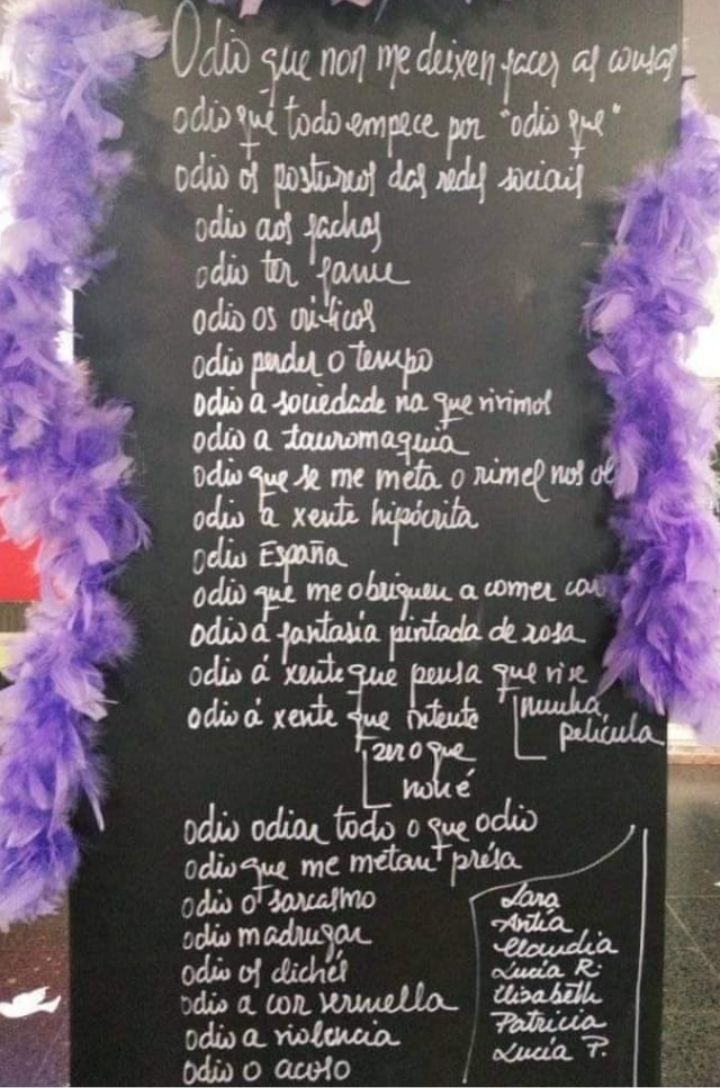 Odio que non me deixen facer as cousas
odio que todo empece por "odio que"
odio os postureos das redes sociais
odio aos fachas
odio ter fame
odio os críticos
odio perder o tempo
odio a sociedade na que vivimos
odio a tauromaquia
odio que se me meta o rimel nos ol
odio a xente hipócrita
odio España
odio que me obriguen a comer car
odio a fantasía pintada de rosa
odio á xente que pensa que vive
nunha
película
odio á xente que intente
ser o que
non é
odio odiar todo o que odio
odio que me metan présa
odio o sarcasmo
odio madrugar
odio os clichés
odio a cor vermella
odio a violencia
odio o acoso
Sara
Antía
Claudia
Lucía R.
Elisabeth
Patricia
Lucía P.